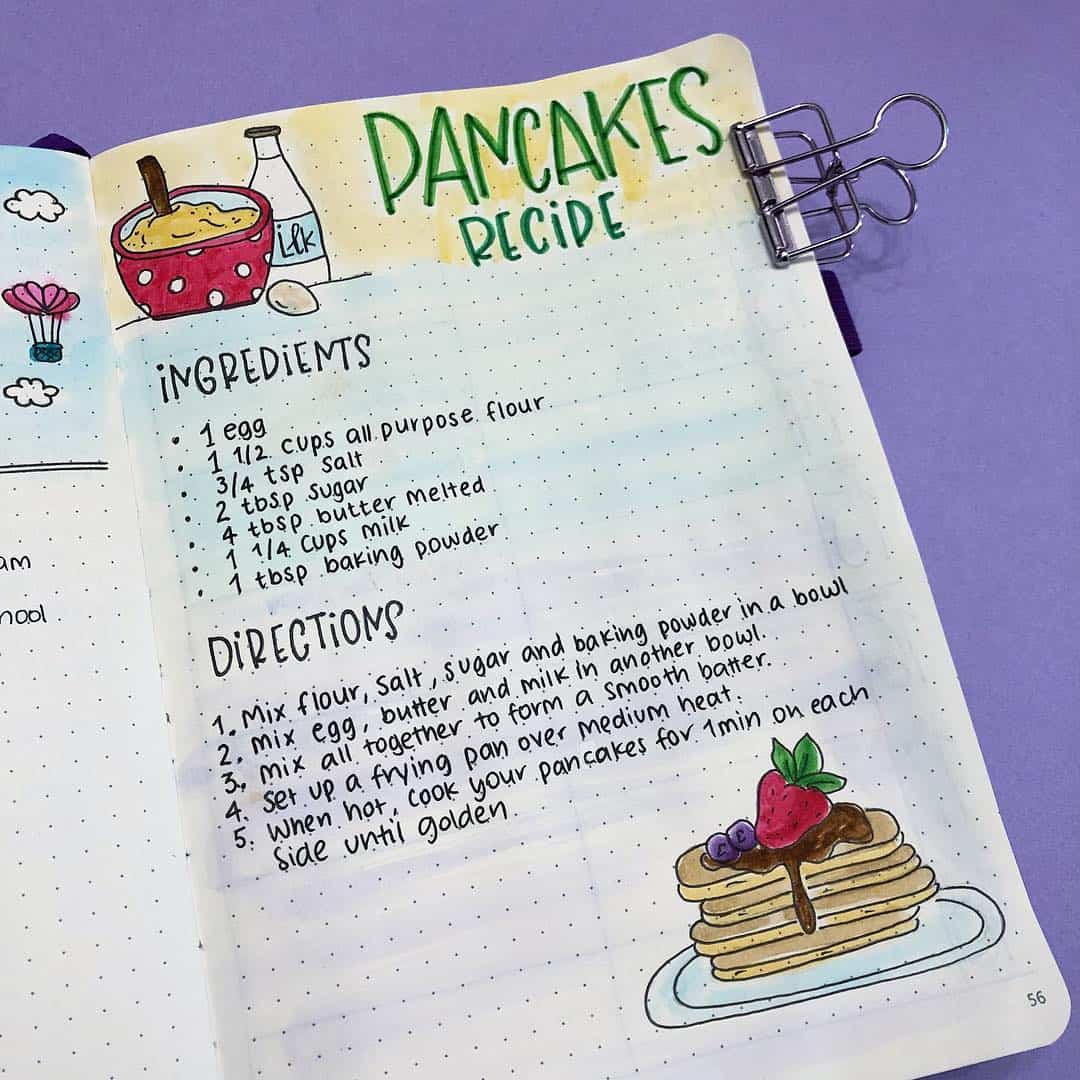 PANCAKES
RECIPE
Milk
INGREDIENTS
• 1 egg
• 1 1/2 cups all purpose flour
• 3/4 tsp salt
• 2 tbsp sugar
• 4 tbsp butter melted
• 1 1/4 cups milk
• 1 tbsp baking powder
DIRECTIONS
1. Mix flour, salt, sugar and baking powder in a bowl
2. mix egg, butter and milk in another bowl.
3. mix all together to form a smooth batter.
4. Set up a frying pan over medium heat.
5. When hot, cook your pancakes for 1min on each
side until golden
56
am
hool